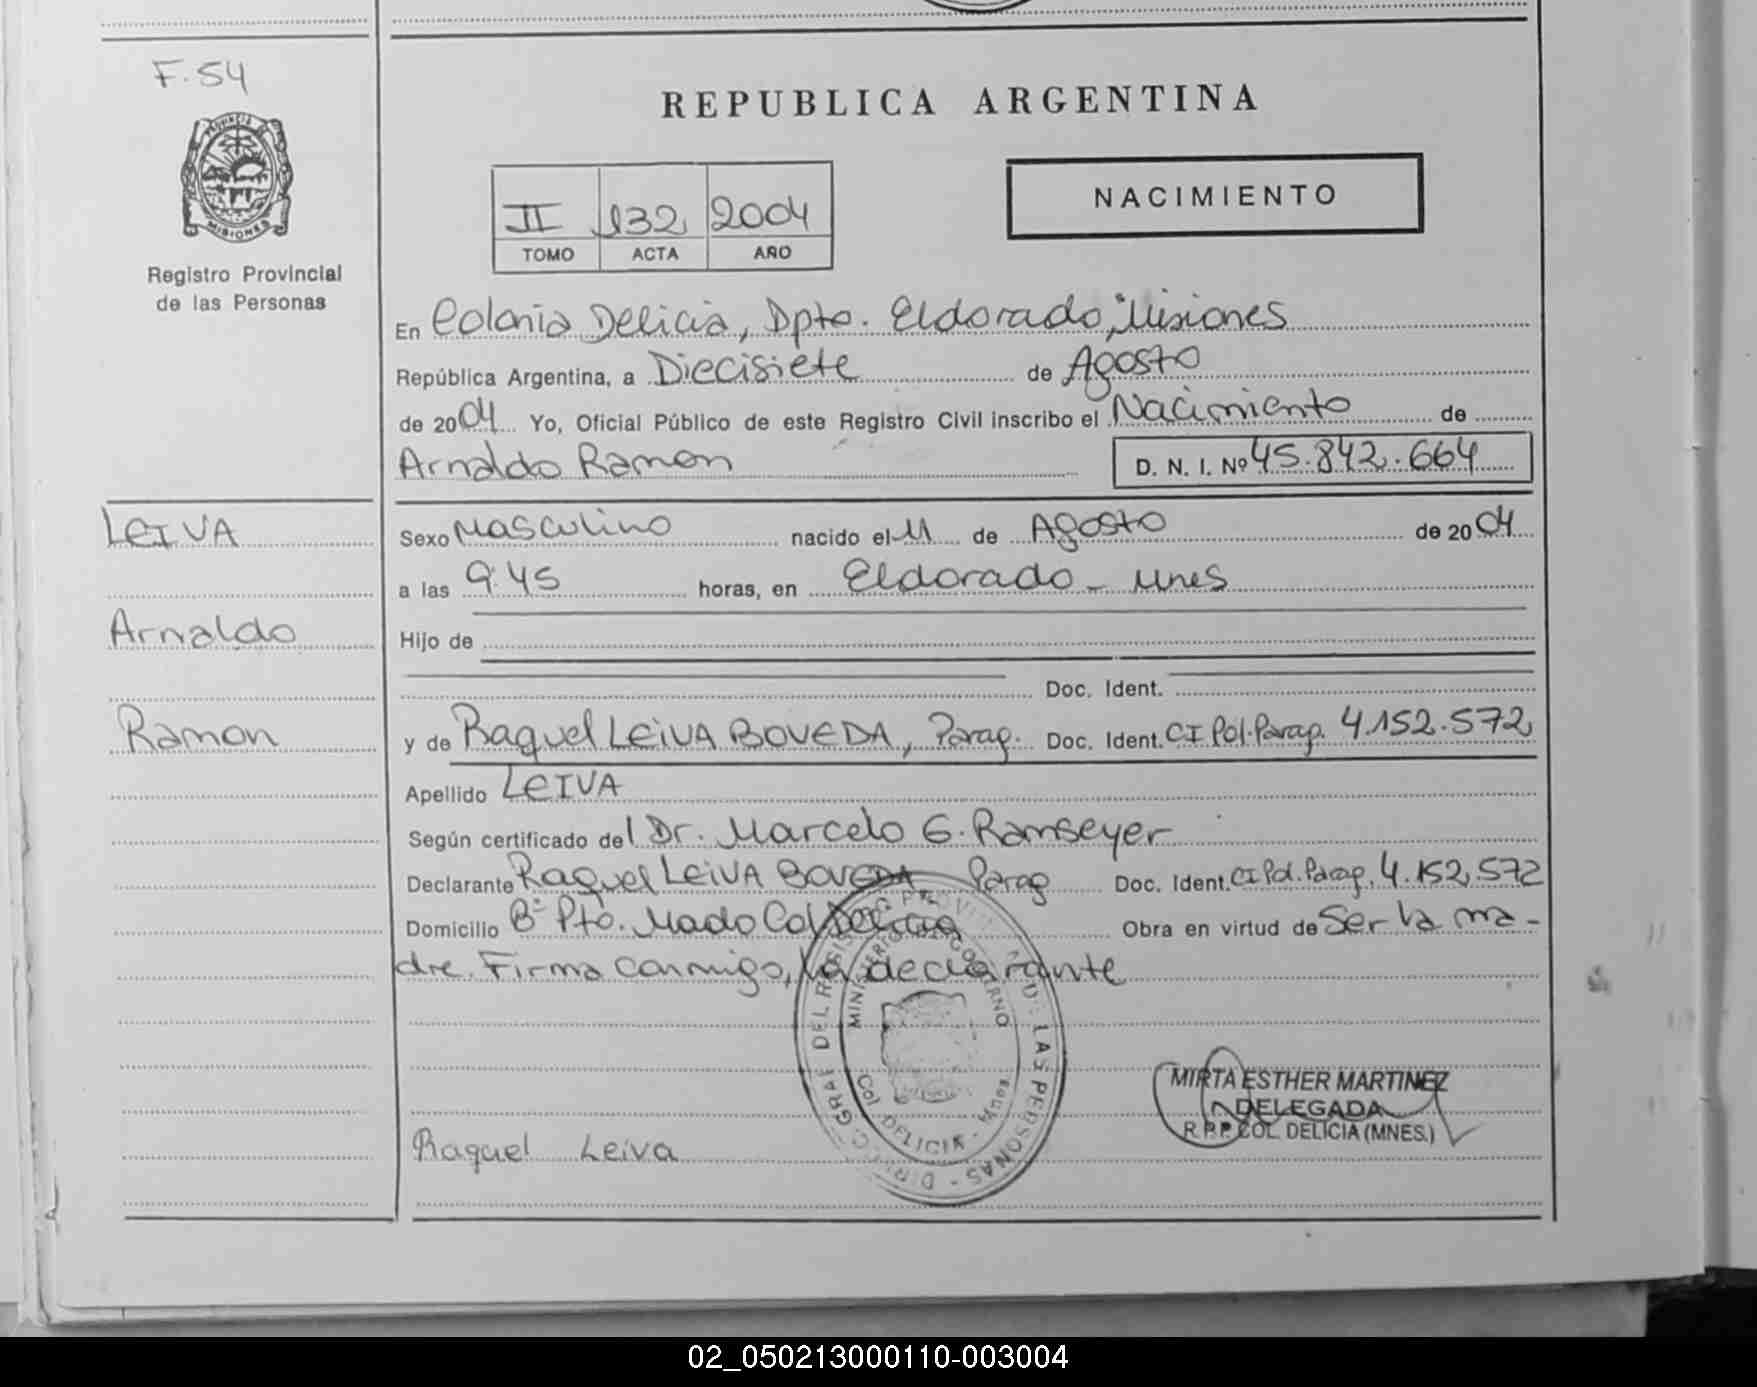 F. 54
PROVINCIA DE
MISIONES
Registro Provincial
de las Personas
REPUBLICA ARGENTINA
II 132 2004
TOMO ACTA AÑO
NACIMIENTO
En Colonia Delicia, Dpto. Eldorado, Misiones
República Argentina, a Diecisiete de Agosto
de 2004 Yo, Oficial Público de este Registro Civil inscribo el Nacimiento de
Arnaldo Ramon D. N. I. Nº 45.842.664
LEIVA
Arnaldo
Ramon
Sexo Masculino nacido el 11 de Agosto de 2004
a las 9:45 horas, en Eldorado - Mnes
Hijo de
Doc. Ident.
y de Raquel LEIVA BOVEDA, Parag. Doc. Ident. CI Pol. Parag. 4.152.572
Apellido LEIVA
Según certificado del Dr. Marcelo G. Ramseyer
Declarante Raquel LEIVA BOVEDA Parag Doc. Ident. CI Pol. Parag. 4.152.572
Domicilio Bº Pto. Mado Col Delicia Obra en virtud de Ser la ma-
dre. Firma conmigo, la declarante
MINISTERIO DE GOBIERNO
DE LAS PERSONAS
Col. DELICIA - Mnes.
MIRTA ESTHER MARTINEZ
DELEGADA
R.P.P. COL. DELICIA (MNES.)
Raquel Leiva
02_050213000110-003004